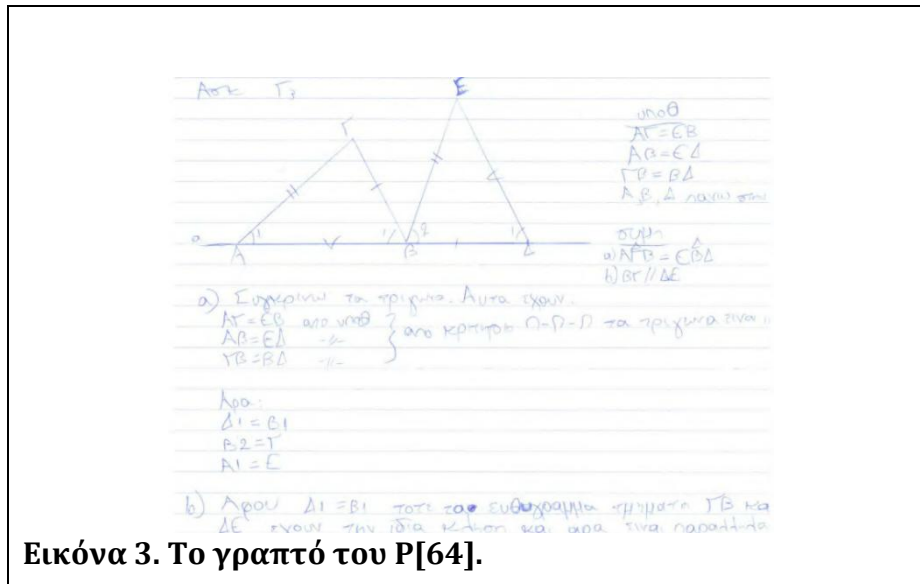 Ασκ Γ3
Ε
Γ
υποθ
ΑΓ = ΕΒ
ΑΒ = ΕΔ
ΓΒ = ΒΔ
Α, Β, Δ πανω στην
ε
1
1
2
1
Α
Β
Δ
συμπ
α) ΑΓΒ = ΕΒΔ
b) ΒΓ // ΔΕ
a) Συγκρινω τα τριγωνα. Αυτα εχουν:
ΑΓ = ΕΒ απο υποθ
ΑΒ = ΕΔ -//-
ΓΒ = ΒΔ -//-
απο κριτηριο Π-Π-Π τα τριγωνα ειναι
Αρα:
Δ1 = Β1
Β2 = Γ
Α1 = Ε
b) Αφου Δ1 = Β1 τοτε τα ευθυγραμμα τμηματα ΓΒ κα
ΔΕ εχουν την ιδια κλιση και αρα ειναι παραλληλα
Εικόνα 3. Το γραπτό του P[64].